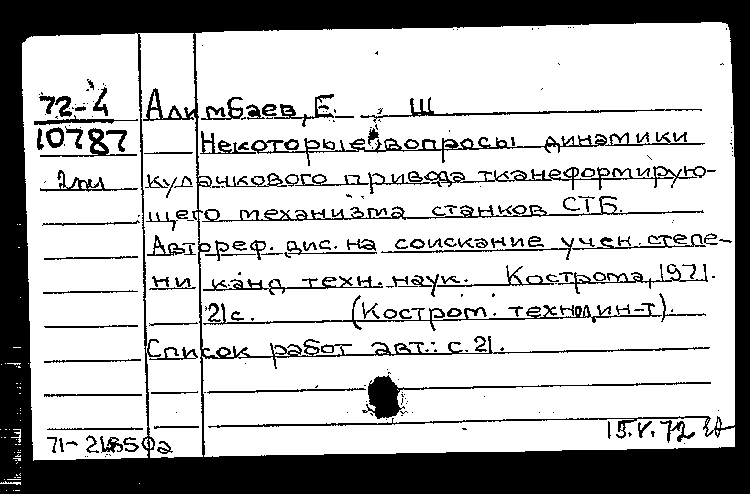 72-4
10787
Алимбаев, Е. Ш
Некоторые вопросы динамики
кулачкового привода тканеформирую-
щего механизма станков СТБ.
Автореф. дис. на соискание учен. степе-
ни канд. техн. наук. Кострома, 1971.
21с. (Костром. технол. ин-т).
Список работ авт.: с. 21.
71-21850а
15.V.72